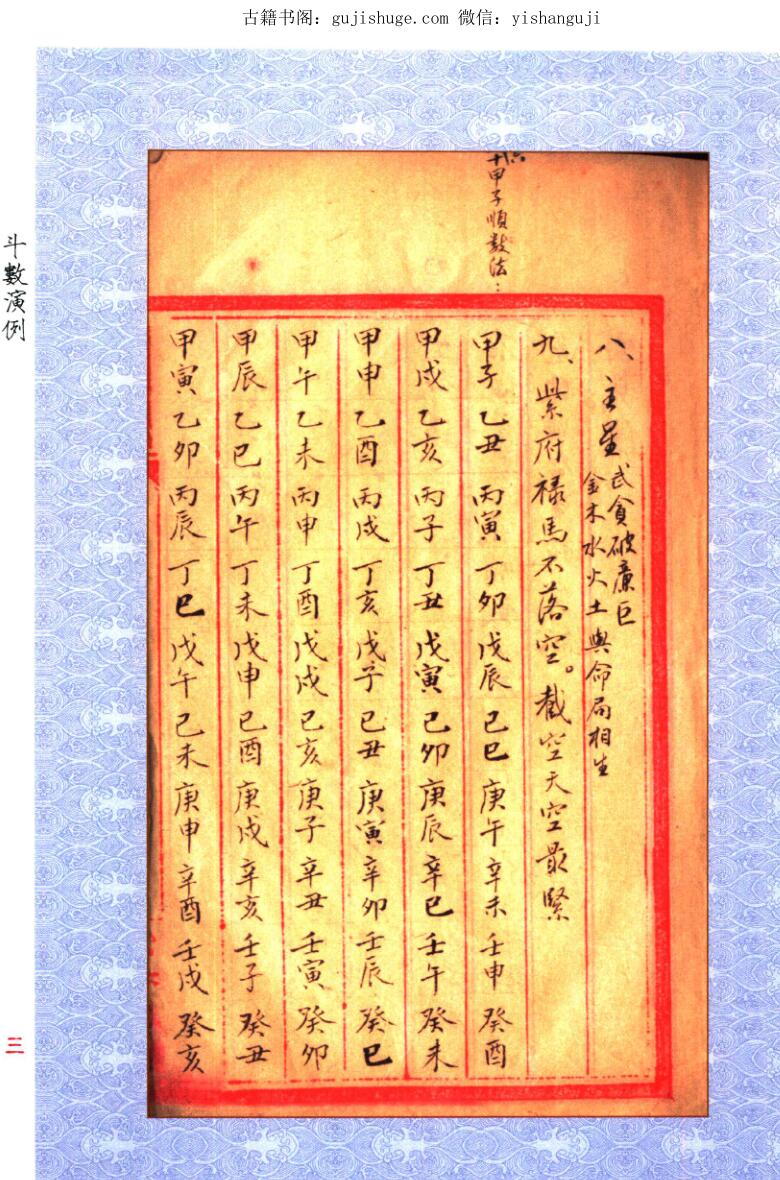 古籍书阁：gujishuge.com 微信：yishanguji
斗數演例
三
六十甲子順數法：
八、主星 武貪破廉巨
金木水火土與命局相生
九、紫府祿馬不落空。截空天空最緊
甲子乙丑丙寅丁卯戊辰己巳庚午辛未壬申癸酉
甲戌乙亥丙子丁丑戊寅己卯庚辰辛巳壬午癸未
甲申乙酉丙戌丁亥戊子己丑庚寅辛卯壬辰癸巳
甲午乙未丙申丁酉戊戌己亥庚子辛丑壬寅癸卯
甲辰乙巳丙午丁未戊申己酉庚戌辛亥壬子癸丑
甲寅乙卯丙辰丁巳戊午己未庚申辛酉壬戌癸亥